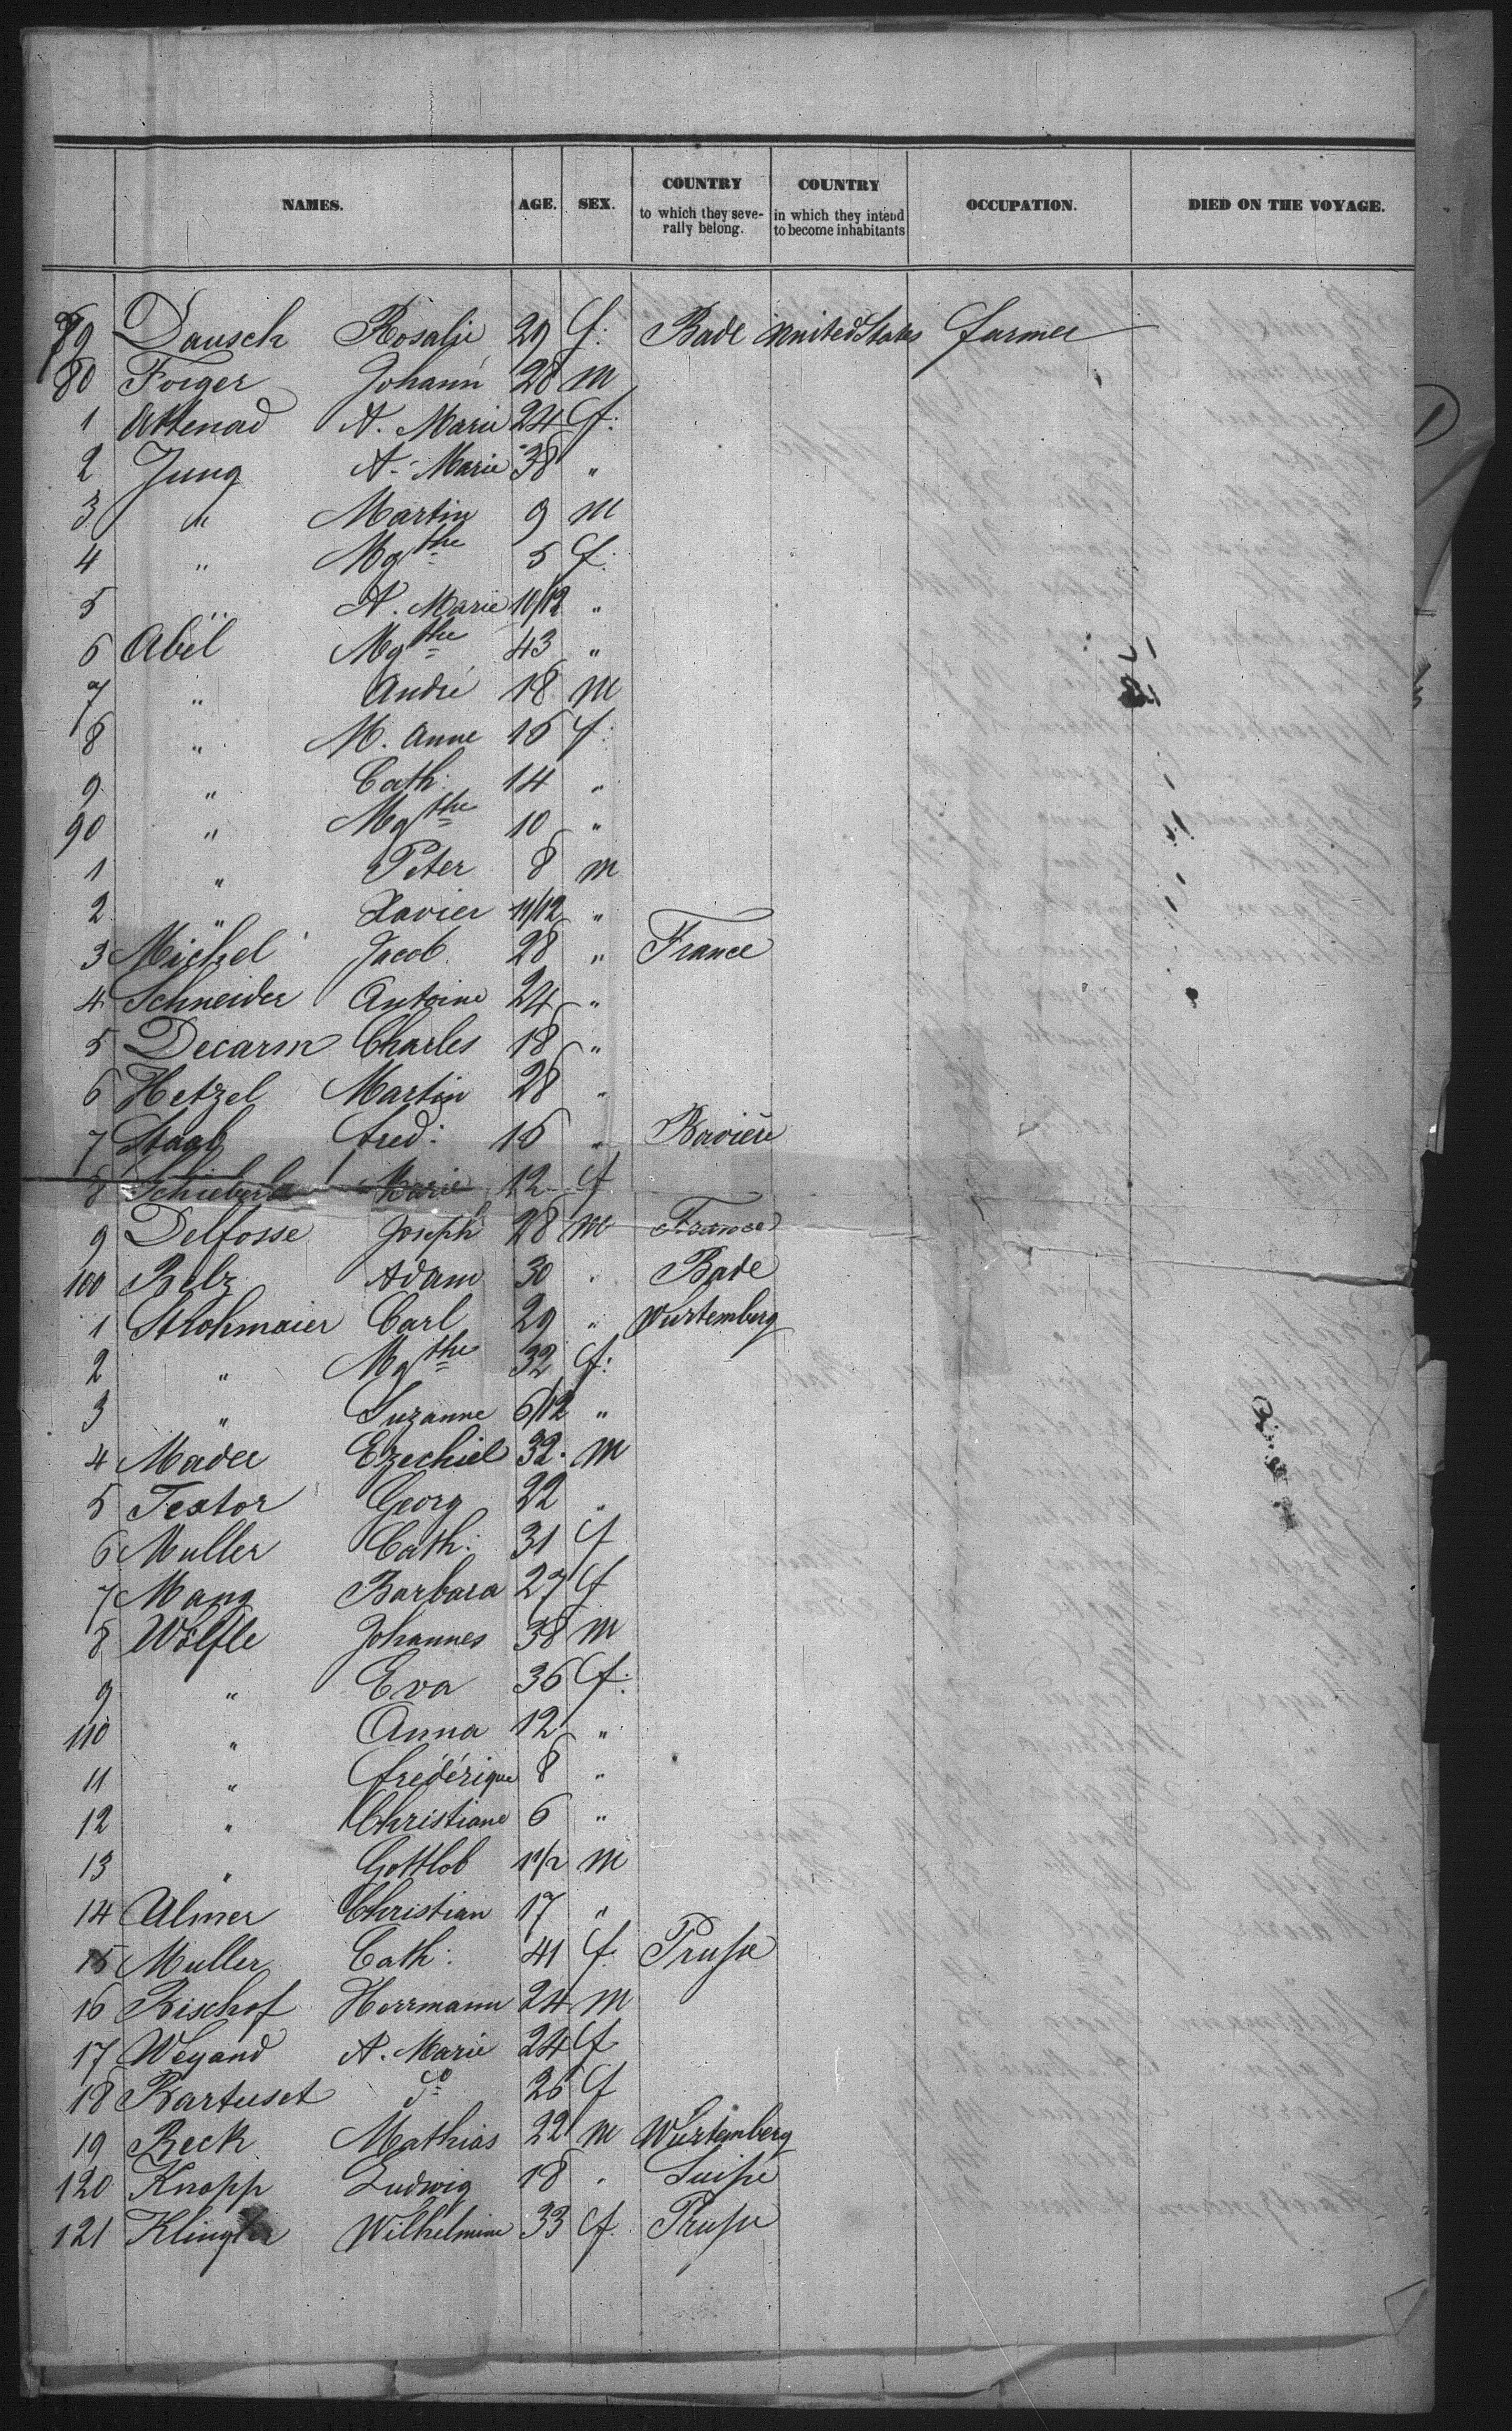 NAMES. AGE. SEX. COUNTRY to which they severally belong. COUNTRY in which they intend to become inhabitants OCCUPATION. DIED ON THE VOYAGE.
79 Dausch Rosalie 29 f. Bade United States farmer
80 Foiger Johann 28 m
1 A. Marie 24 f.
2 Jung A. Marie 38 "
3 " Martin 9 m
4 " Mgthe 5 f.
5 " A. Marie 10/12 "
6 Abel Mgthe 43 "
7 " André 18 m
8 " M. Anne 16 f.
9 " Cath: 14 "
90 " Mgthe 10 "
1 " Peter 8 m
2 " Xavier 11/12 "
3 Michel Jacob 28 " France
4 Schneider Antoine 24 "
5 Decarm Charles 18 "
6 Hetzel Martin 28 "
7 Staab fred: 16 " Bavière
8 Marie 12 f
9 Delfosse Joseph 28 m France
100 Belz Adam 30 " Bade
1 Strohmaier Carl 29 " Wurtemberg
2 " Mgthe 32 f.
3 " Suzanne 6/12 "
4 Mader Ezechiel 32. m
5 Textor Georg 22 "
6 Muller Cath: 31 f
7 Mang Barbara 27 f
8 Wölfle Johannes 38 m
9 " Eva 36 f.
110 " Anna 12 "
11 " frédérique 8 "
12 " Christiane 6 "
13 " Gottlob 1 1/2 m
14 Ulmer Christian 17 "
15 Muller Cath: 41 f. Prusse
16 Bischof Herrmann 24 m
17 Weyand A. Marie 24 f
18 Bartuset do 26 f
19 Beck Mathias 22 m Würtemberg
120 Knapp Ludwig 18 " Suisse
121 Klingler Wilhelmine 33 f. Prusse